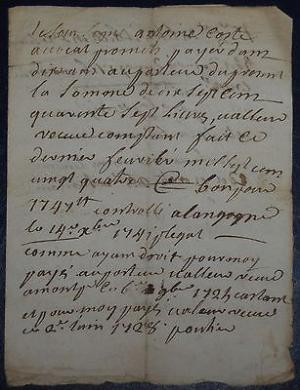 Je soussigné antoine coste
avocat promets payer dans
dix ans au porteur du present
la somme de dix sept cens
quarante sept livres, valleur
receue comptant fait ce
dernier feuvrier mil sept cens
vingt quatre bon pour
1747tt controllé a langogne
le 14e xbre 1741
comme ayant droit pour moy
payés au porteur valleur receue
a ce 6e 9bre 1724
et pour moy payés valeur receue
ce 2e Juin 1728